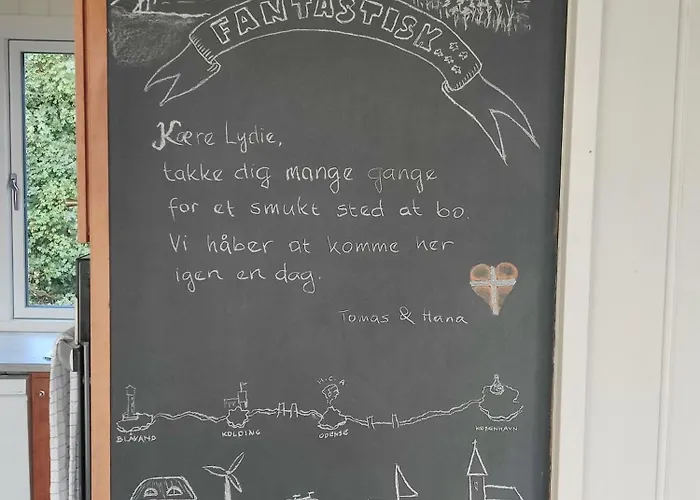 FANTASTISK
Kære Lydie,
takke dig mange gange
for et smukt sted at bo.
Vi håber at komme her
igen en dag.
Tomas & Hana
H.C.A
BLÅVAND
KOLDING
ODENSE
KØBENHAVN